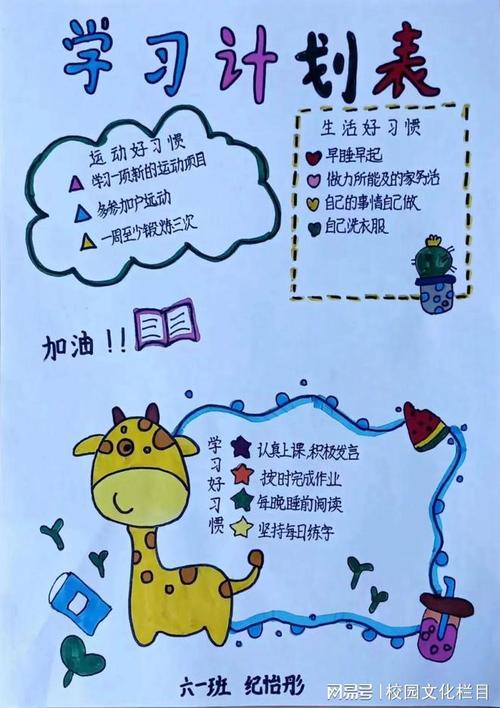 学习计划表
运动好习惯
学习一项新的运动项目
多参加户运动
一周至少锻炼三次
生活好习惯
早睡早起
做力所能及的家务活
自己的事情自己做
自己洗衣服
加油!!
学习好习惯
认真上课,积极发言
按时完成作业
每晚睡前阅读
坚持每日练字
六一班 纪怡彤
网易号 | 校园文化栏目